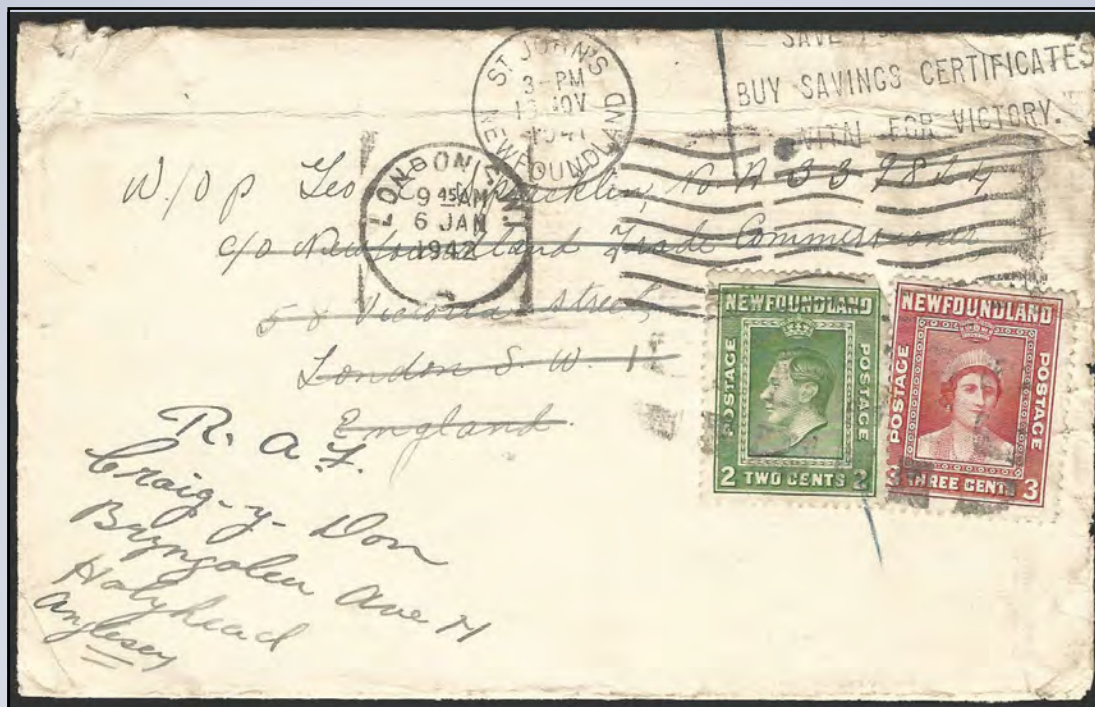 ST. JOHN'S
3-PM
NOV
1941
NEWFOUNDLAND
SAVE
BUY SAVINGS CERTIFICATES
VITAL FOR VICTORY.
LONDON
9 45 AM
6 JAN
1942
W/Op Geo
c/o Newfoundland Trade Commissioner
58 Victoria Street
London S.W. 1
England.
R. A. F.
Craig-y-Don
Bryngoleu Ave H
Holyhead
Anglesey
NEWFOUNDLAND
POSTAGE
POSTAGE
2 TWO CENTS 2
NEWFOUNDLAND
POSTAGE
POSTAGE
3 THREE CENTS 3